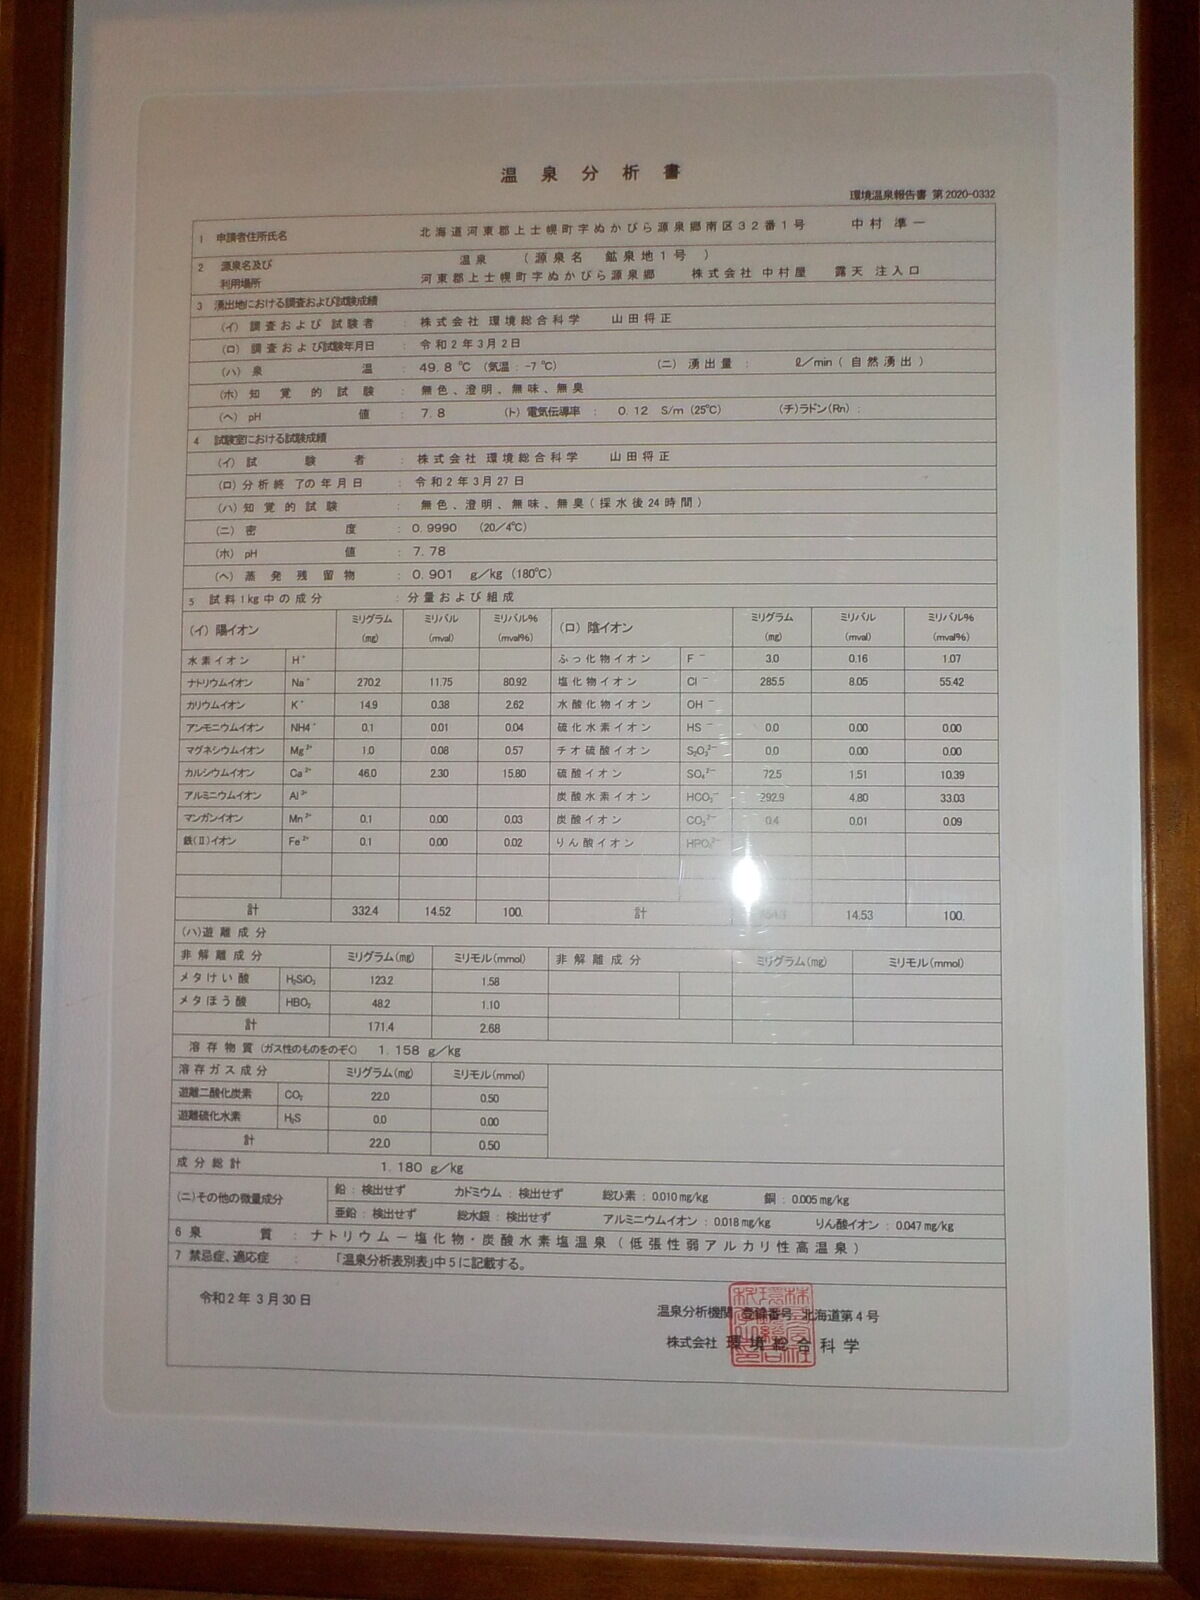 温泉分析書
環境温泉報告書 第2020-0332
1 申請者住所氏名 北海道河東郡上士幌町字ぬかびら源泉郷南区32番1号 中村 準一
2 源泉名及び 利用場所 温泉 (源泉名 鉱泉地1号)
河東郡上士幌町字ぬかびら源泉郷 株式会社 中村屋 露天 注入口
3 湧出地における調査および試験成績
(イ) 調査および試験者 : 株式会社 環境総合科学 山田将正
(ロ) 調査および試験年月日 : 令和2年3月2日
(ハ) 泉温 : 49.8 ℃ (気温 : -7 ℃) (ニ) 湧出量 : ℓ/min (自然湧出)
(ホ) 知覚的試験 : 無色、澄明、無味、無臭
(ヘ) pH値 : 7.8 (ト) 電気伝導率 : 0.12 S/m (25℃) (チ)ラドン(Rn) :
4 試験室における試験成績
(イ) 試験者 : 株式会社 環境総合科学 山田将正
(ロ) 分析終了の年月日 : 令和2年3月27日
(ハ) 知覚的試験 : 無色、澄明、無味、無臭(採水後24時間)
(ニ) 密度 : 0.9990 (20/4℃)
(ホ) pH値 : 7.78
(ヘ) 蒸発残留物 : 0.901 g/kg (180℃)
5 試料1kg中の成分 : 分量および組成
(イ) 陽イオン ミリグラム (mg) ミリバル (mval) ミリバル% (mval%) (ロ) 陰イオン ミリグラム (mg) ミリバル (mval) ミリバル% (mval%)
水素イオン H⁺ ふっ化物イオン F⁻ 3.0 0.16 1.07
ナトリウムイオン Na⁺ 270.2 11.75 80.92 塩化物イオン Cl⁻ 285.5 8.05 55.42
カリウムイオン K⁺ 14.9 0.38 2.62 水酸化物イオン OH⁻
アンモニウムイオン NH4⁺ 0.1 0.01 0.04 硫化水素イオン HS⁻ 0.0 0.00 0.00
マグネシウムイオン Mg²⁺ 1.0 0.08 0.57 チオ硫酸イオン S₂O₃²⁻ 0.0 0.00 0.00
カルシウムイオン Ca²⁺ 46.0 2.30 15.80 硫酸イオン SO₄²⁻ 72.5 1.51 10.39
アルミニウムイオン Al³⁺ 炭酸水素イオン HCO₃⁻ 292.9 4.80 33.03
マンガンイオン Mn²⁺ 0.1 0.00 0.03 炭酸イオン CO₃²⁻ 0.4 0.01 0.09
鉄(Ⅱ)イオン Fe²⁺ 0.1 0.00 0.02 りん酸イオン HPO₄²⁻
計 332.4 14.52 100. 計 14.53 100.
(ハ)遊離成分
非解離成分 ミリグラム(mg) ミリモル(mmol) 非解離成分 ミリグラム(mg) ミリモル(mmol)
メタけい酸 H₂SiO₃ 123.2 1.58
メタほう酸 HBO₂ 48.2 1.10
計 171.4 2.68
溶存物質 (ガス性のものをのぞく) 1.158 g/kg
溶存ガス成分 ミリグラム(mg) ミリモル(mmol)
遊離二酸化炭素 CO₂ 22.0 0.50
遊離硫化水素 H₂S 0.0 0.00
計 22.0 0.50
成分総計 1.180 g/kg
(ニ)その他の微量成分 鉛 : 検出せず カドミウム : 検出せず 総ひ素 : 0.010 mg/kg 銅 : 0.005 mg/kg
亜鉛 : 検出せず 総水銀 : 検出せず アルミニウムイオン : 0.018 mg/kg りん酸イオン : 0.047 mg/kg
6 泉質 : ナトリウム-塩化物・炭酸水素塩温泉(低張性弱アルカリ性高温泉)
7 禁忌症、適応症 : 「温泉分析表別表」中5に記載する。
令和2年3月30日
温泉分析機関 登録番号 北海道第4号
株式会社 環境総合科学